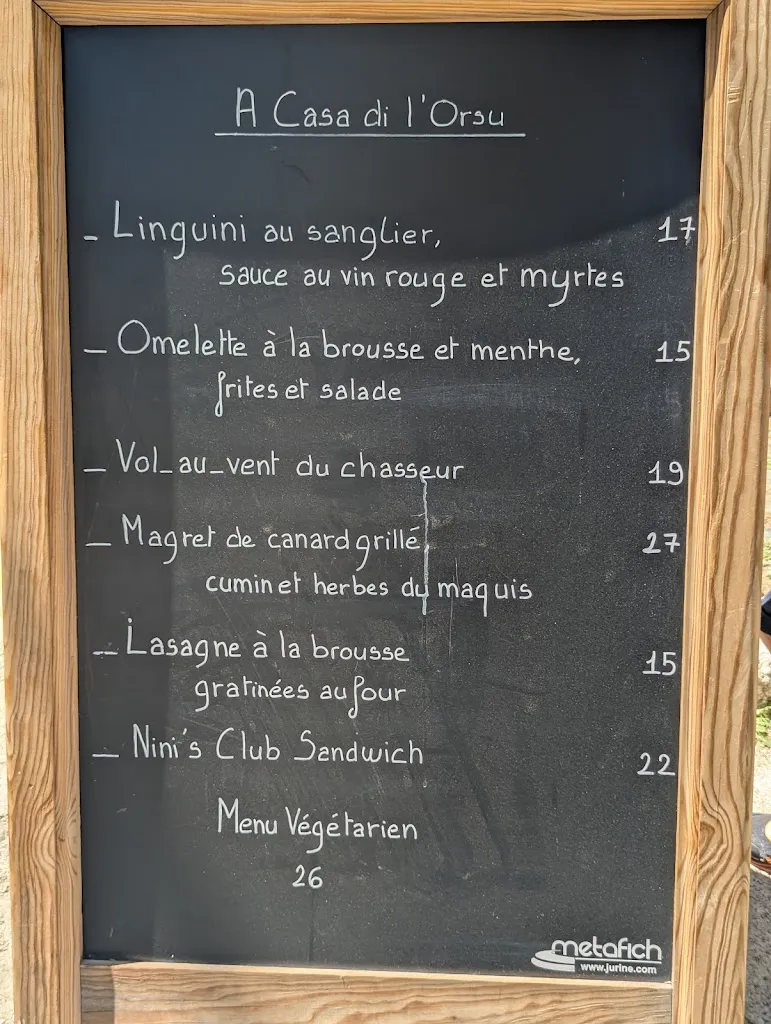 A Casa di l'Orsu
- Linguini au sanglier, 17
sauce au vin rouge et myrtes
- Omelette à la brousse et menthe, 15
frites et salade
- Vol-au-vent du chasseur 19
- Magret de canard grillé, 27
cumin et herbes du maquis
- Lasagne à la brousse 15
gratinées au four
- Nini's Club Sandwich 22
Menu Végétarien
26
metafich
www.jurine.com